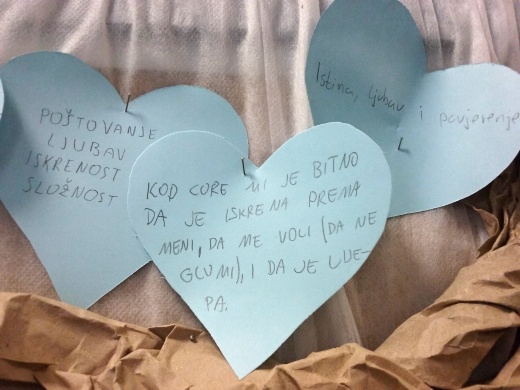 POŠTOVANJE
LJUBAV
ISKRENOST
SLOŽNOST
KOD CURE MI JE BITNO
DA JE ISKRENA PREMA
MENI, DA ME VOLI (DA NE
GLUMI), I DA JE LIJE-
PA.
Istina, ljubav i povjerenje